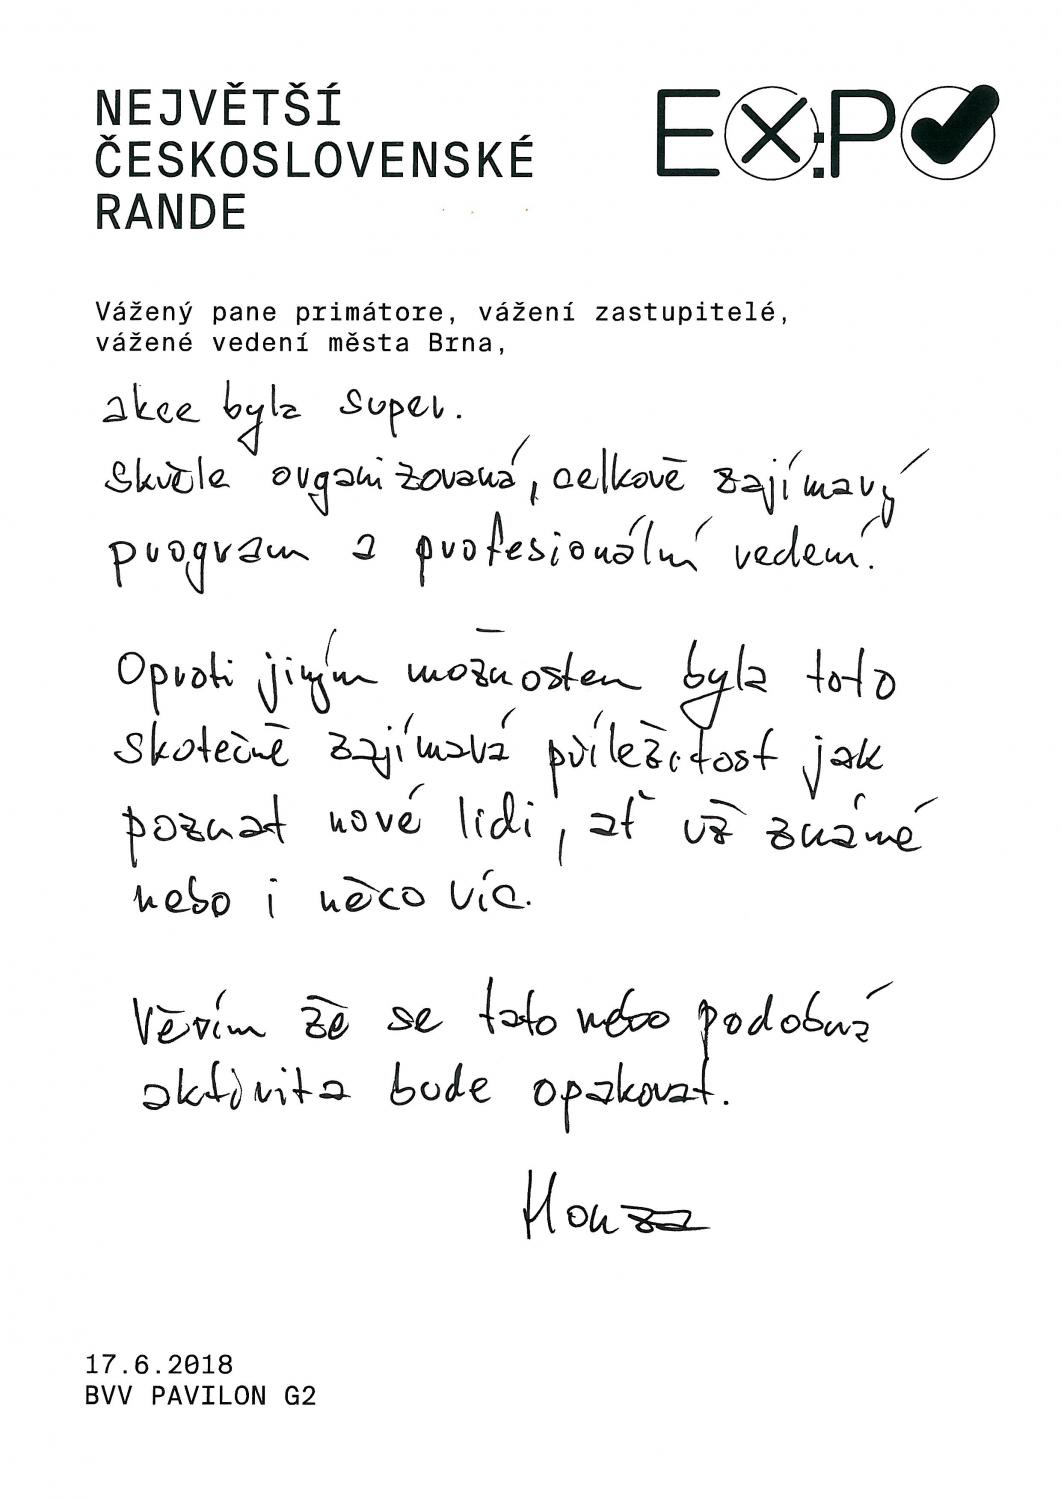 NEJVĚTŠÍ
ČESKOSLOVENSKÉ
RANDE
EX:PO
Vážený pane primátore, vážení zastupitelé,
vážené vedení města Brna,
akce byla super.
Skvěle organizovaná, celkově zajímavý
program a profesionální vedení.
Oproti jiným možnostem byla toto
skotečně zajímavá příležitost jak
poznat nové lidi, ať už známé
nebo i něco víc.
Věřím že se tato nebo podobná
aktivita bude opakovat.
Honza
17.6.2018
BVV PAVILON G2